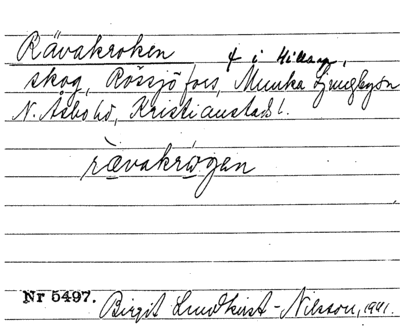 Rävakroken
skog, Rössjöfors, Munka Ljungbysn
N. Åsbo hd, Kristianstads l.
rävakrogen
Nr 5497. Birgit Lundkvist-Nilsson, 1941.